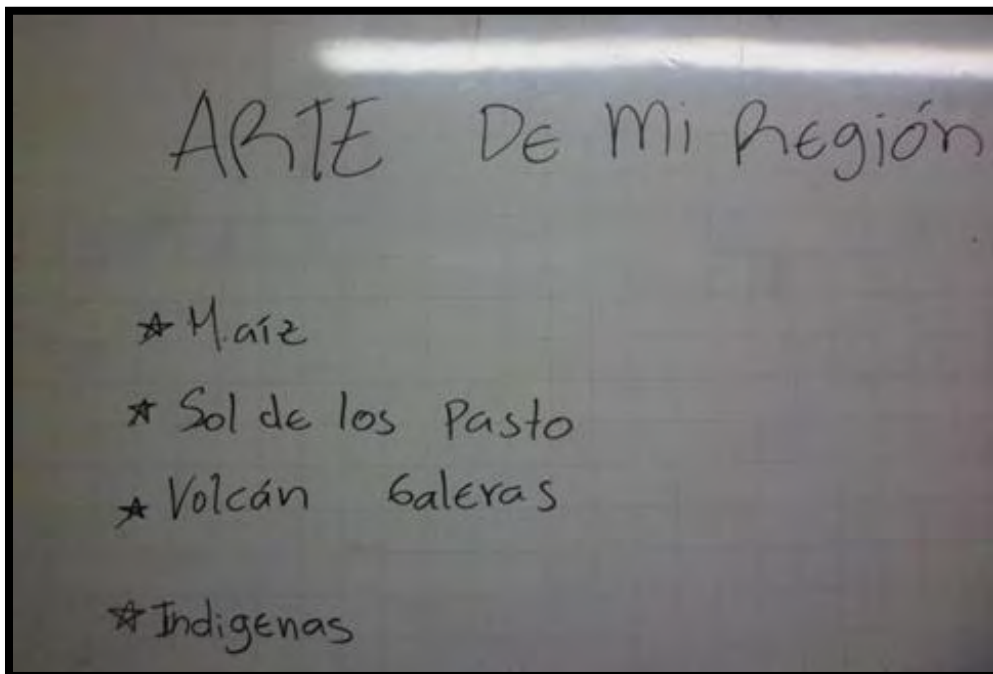 ARTE DE mi REgión
☆ Maíz
☆ Sol de los Pasto
☆ Volcán Galeras
☆ Indigenas